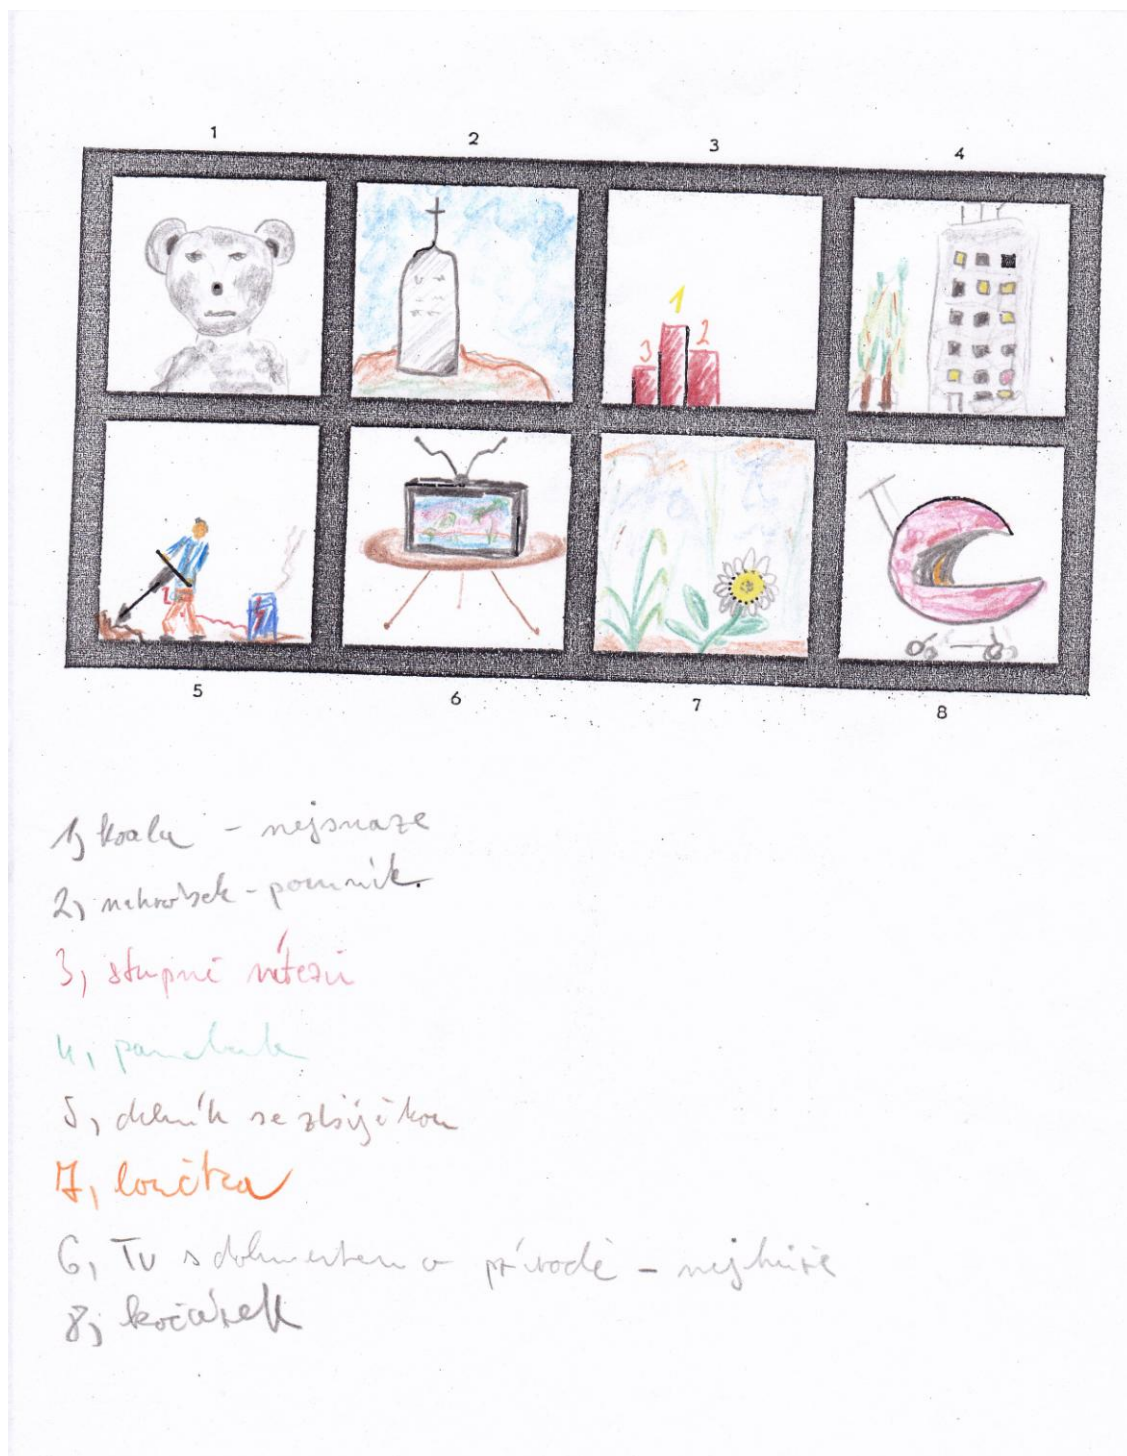 1 2 3 4
1
3 2
5 6 7 8
1, koala - nejsnaze
2, náhrobek - pomník.
3, stupně vítězů
4, panelák
5, dělník se zbíječkou
7, loučka
6, TV s dokumentem o přírodě - nejhůře
8, kočárek